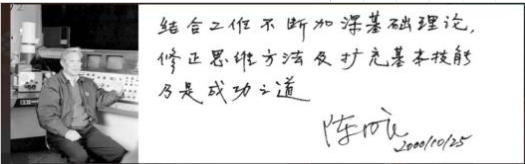 结合工作不断加深基础理论,
修正思维方法及扩充基本技能
乃是成功之道
陈
2000/10/25